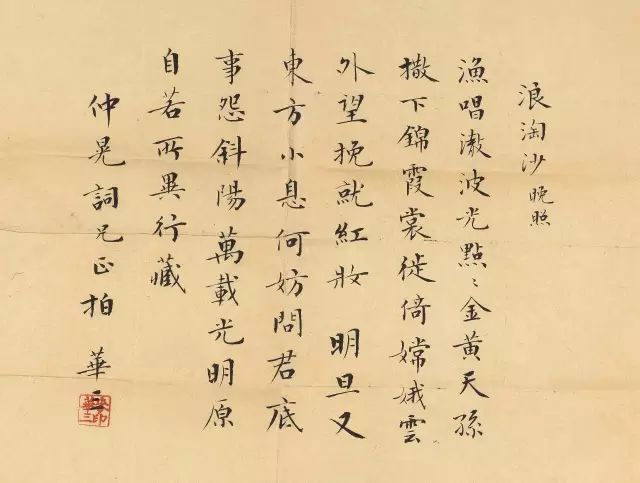 浪淘沙 晚照
漁唱波光點〻金黃天孫
撒下錦霞裳徙倚嫦娥雲
外望挽就紅妝 明旦又
東方小息何妨問君底
事怨斜陽萬載光明原
自若所異行藏
仲晃詞兄正拍 華三